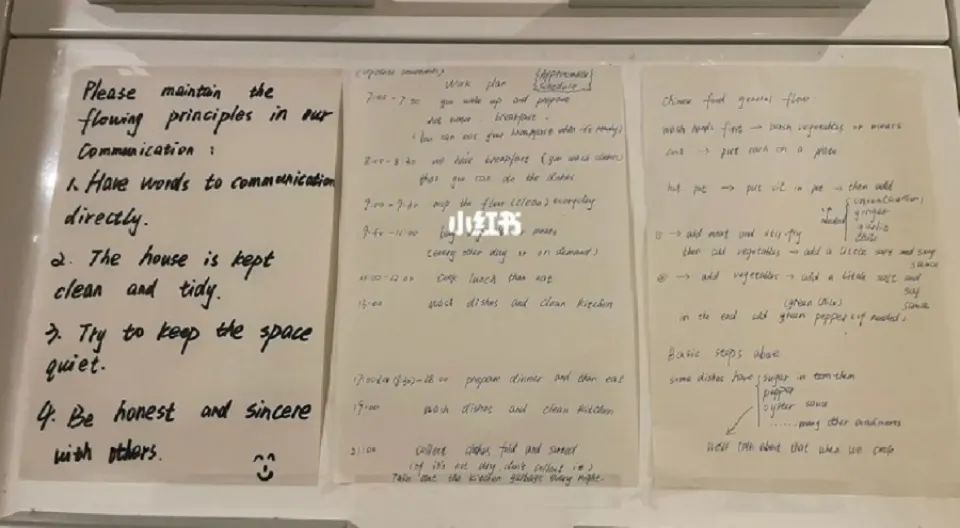 Please maintain the
flowing principles in our
Communication :
1. Have words to communication
directly.
2. The house is kept
clean and tidy.
3. Try to keep the space
quiet.
4. Be honest and sincere
with others.
Work plan
(Approximate
Schedule)
7:00 - 7:50 you wake up and prepare
breakfast.
8:00-8:30 we have breakfast (you wash clothes)
that you can do the
9:00 - 9:40 mop the floor (clean) everyday
小红书
(every other day or on demand)
cook lunch then eat
13:00 wash dishes and clean kitchen
prepare dinner and then eat
19:00 wash dishes and clean kitchen
21:00 collect clothes, fold and
(if it's not dry, don't collect it)
Take out the kitchen garbage every night.
Chinese food general flow.
wash hands first → wash vegetables or meats
→ put each on a plate
hot pot → put oil in pot → then add
if needed
ginger
garlic
① → add meat and stir-fry
then add vegetables → add a little salt and soy
sauce
② → add vegetables → add a little salt and
soy
sauce
in the end add green pepper if needed.
Basic steps above
some dishes have sugar in them
pepper
oyster sauce
...... many other condiments
talk about that when we cook